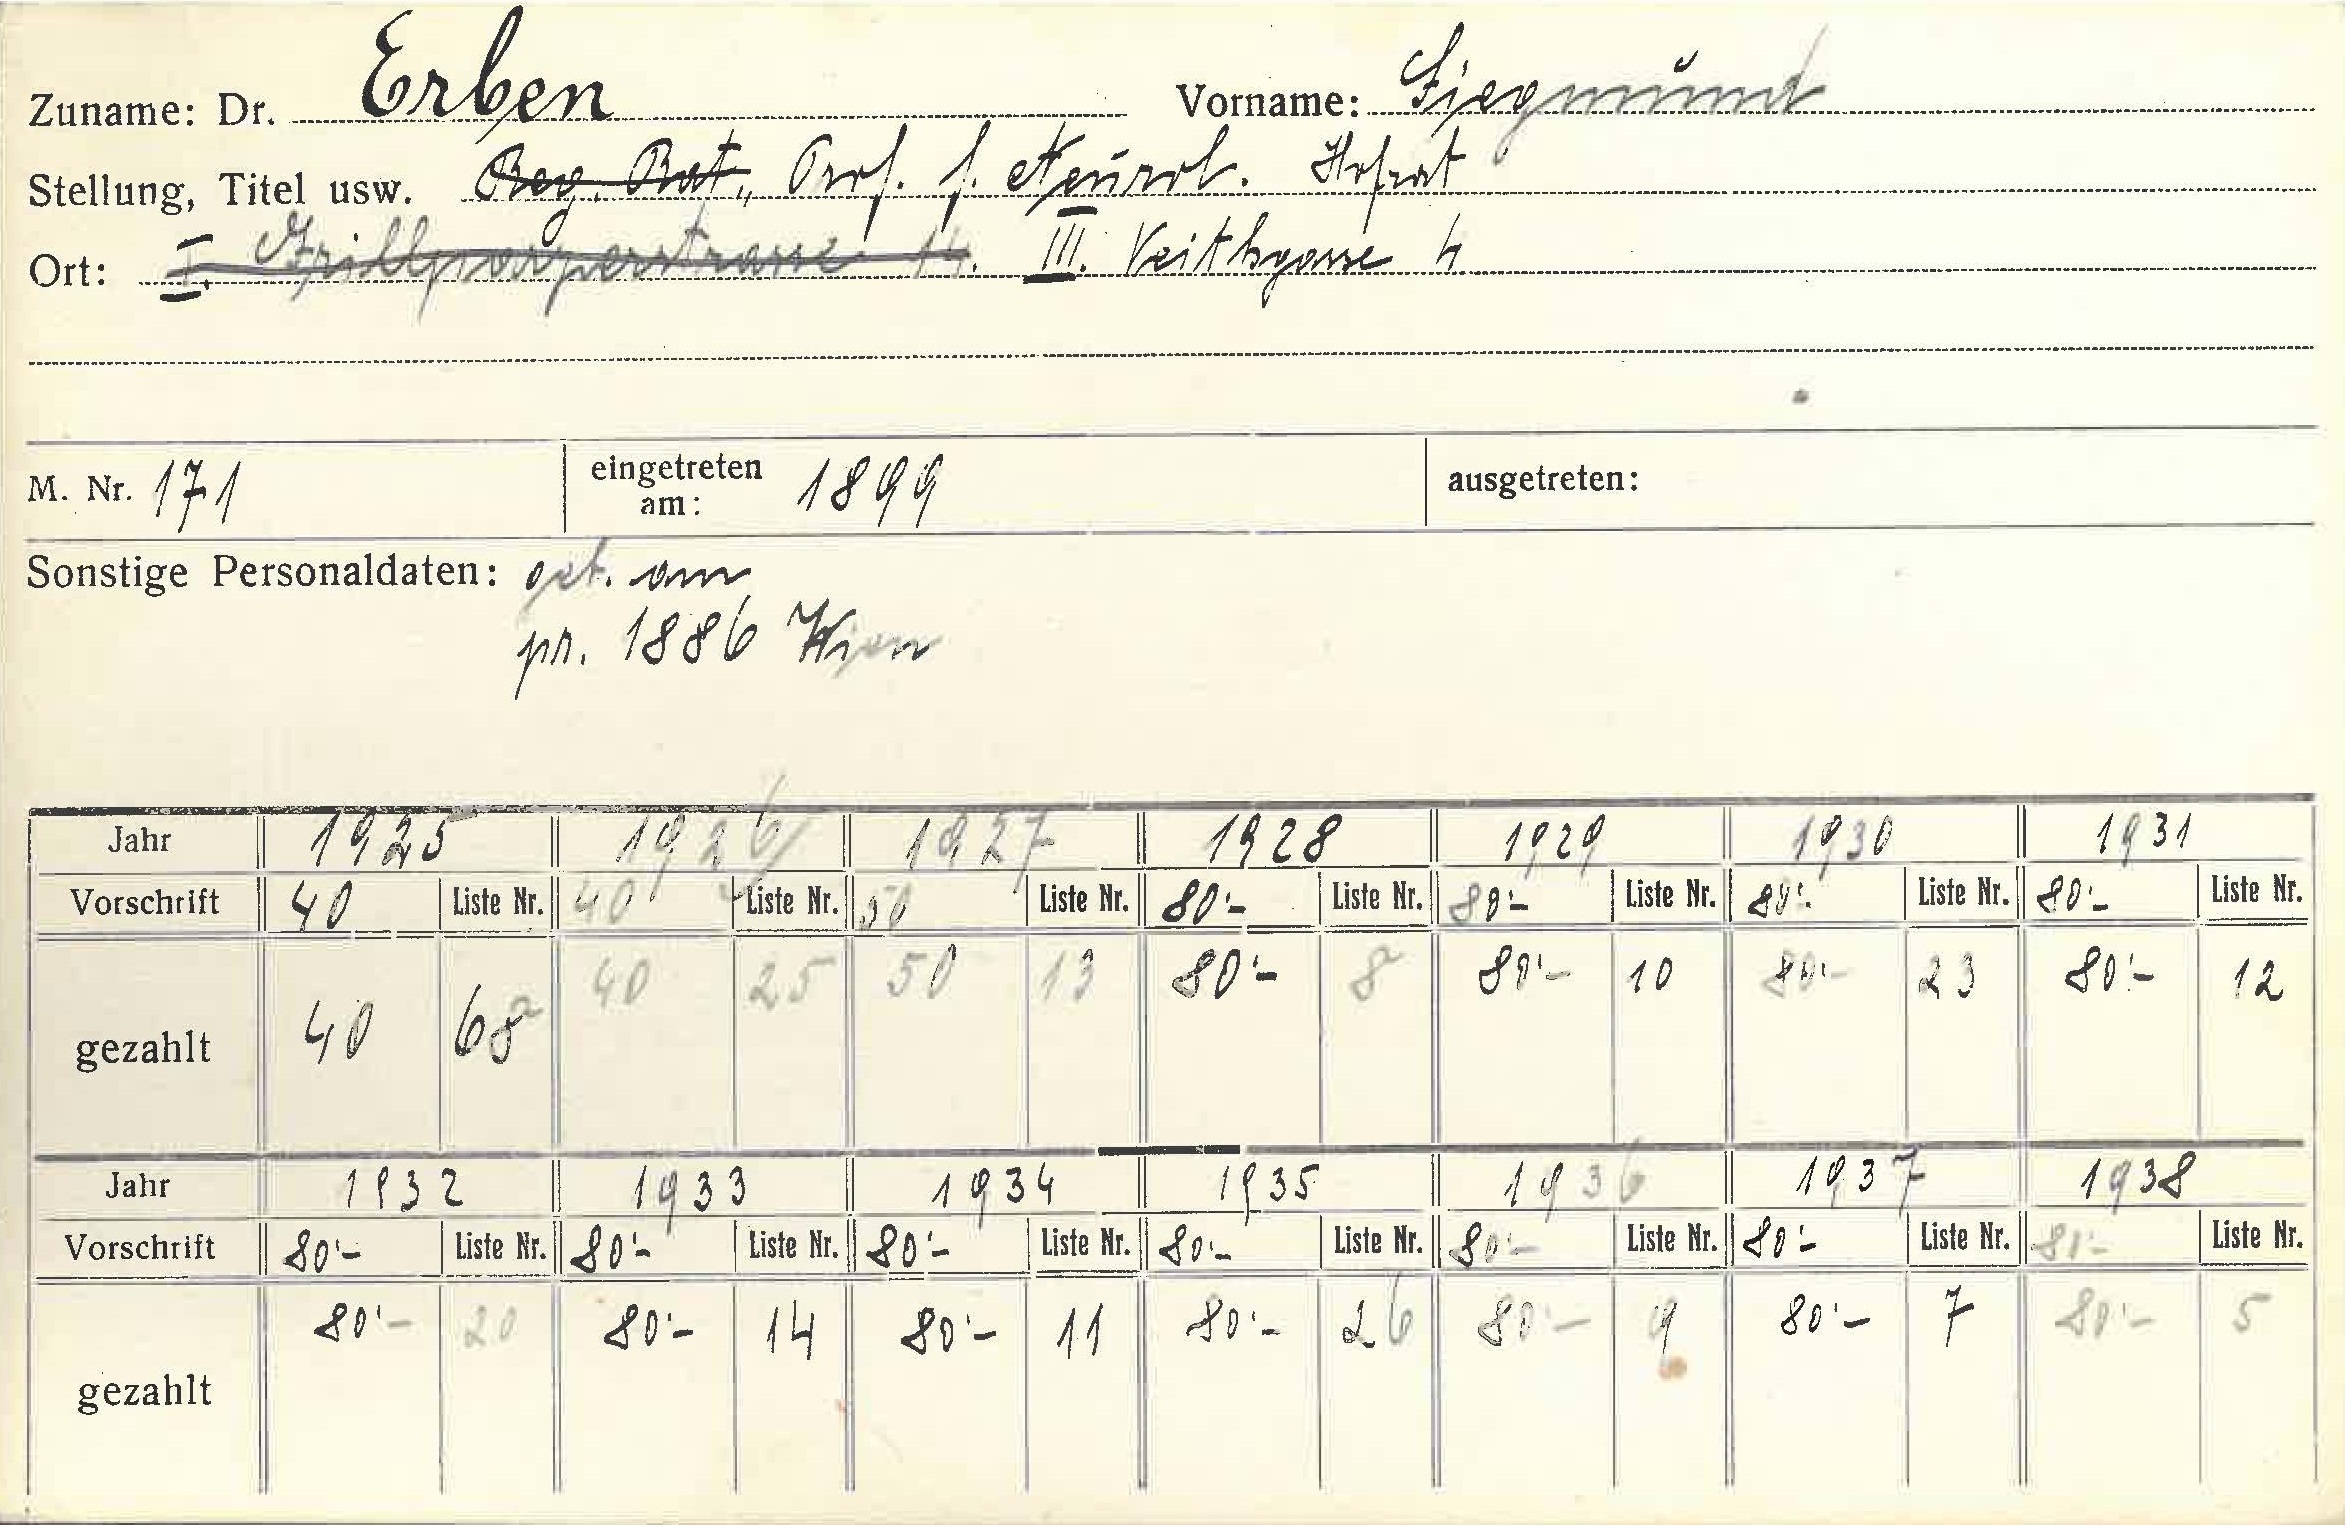 Zuname: Dr. Erben Vorname: Siegmund
Stellung, Titel usw. Reg. Rat., Prof. f. Neurol. Hofrat
Ort: I. Grillparzerstrasse 14. III. Veithgasse 4
M. Nr. 171 eingetreten am: 1899 ausgetreten:
Sonstige Personaldaten: geb. am
pr. 1886 Wien
Jahr 1925 1926 1927 1928 1929 1930 1931
Vorschrift 40 Liste Nr. 40 Liste Nr. 50 Liste Nr. 80'- Liste Nr. 80'- Liste Nr. 80'- Liste Nr. 80'- Liste Nr.
gezahlt 40 68 40 25 50 13 80'- 8 80'- 10 80'- 23 80'- 12
Jahr 1932 1933 1934 1935 1936 1937 1938
Vorschrift 80'- Liste Nr. 80'- Liste Nr. 80'- Liste Nr. 80'- Liste Nr. 80'- Liste Nr. 80'- Liste Nr. 80'- Liste Nr.
gezahlt 80'- 20 80'- 14 80'- 11 80'- 26 80'- 9 80'- 7 80'- 5